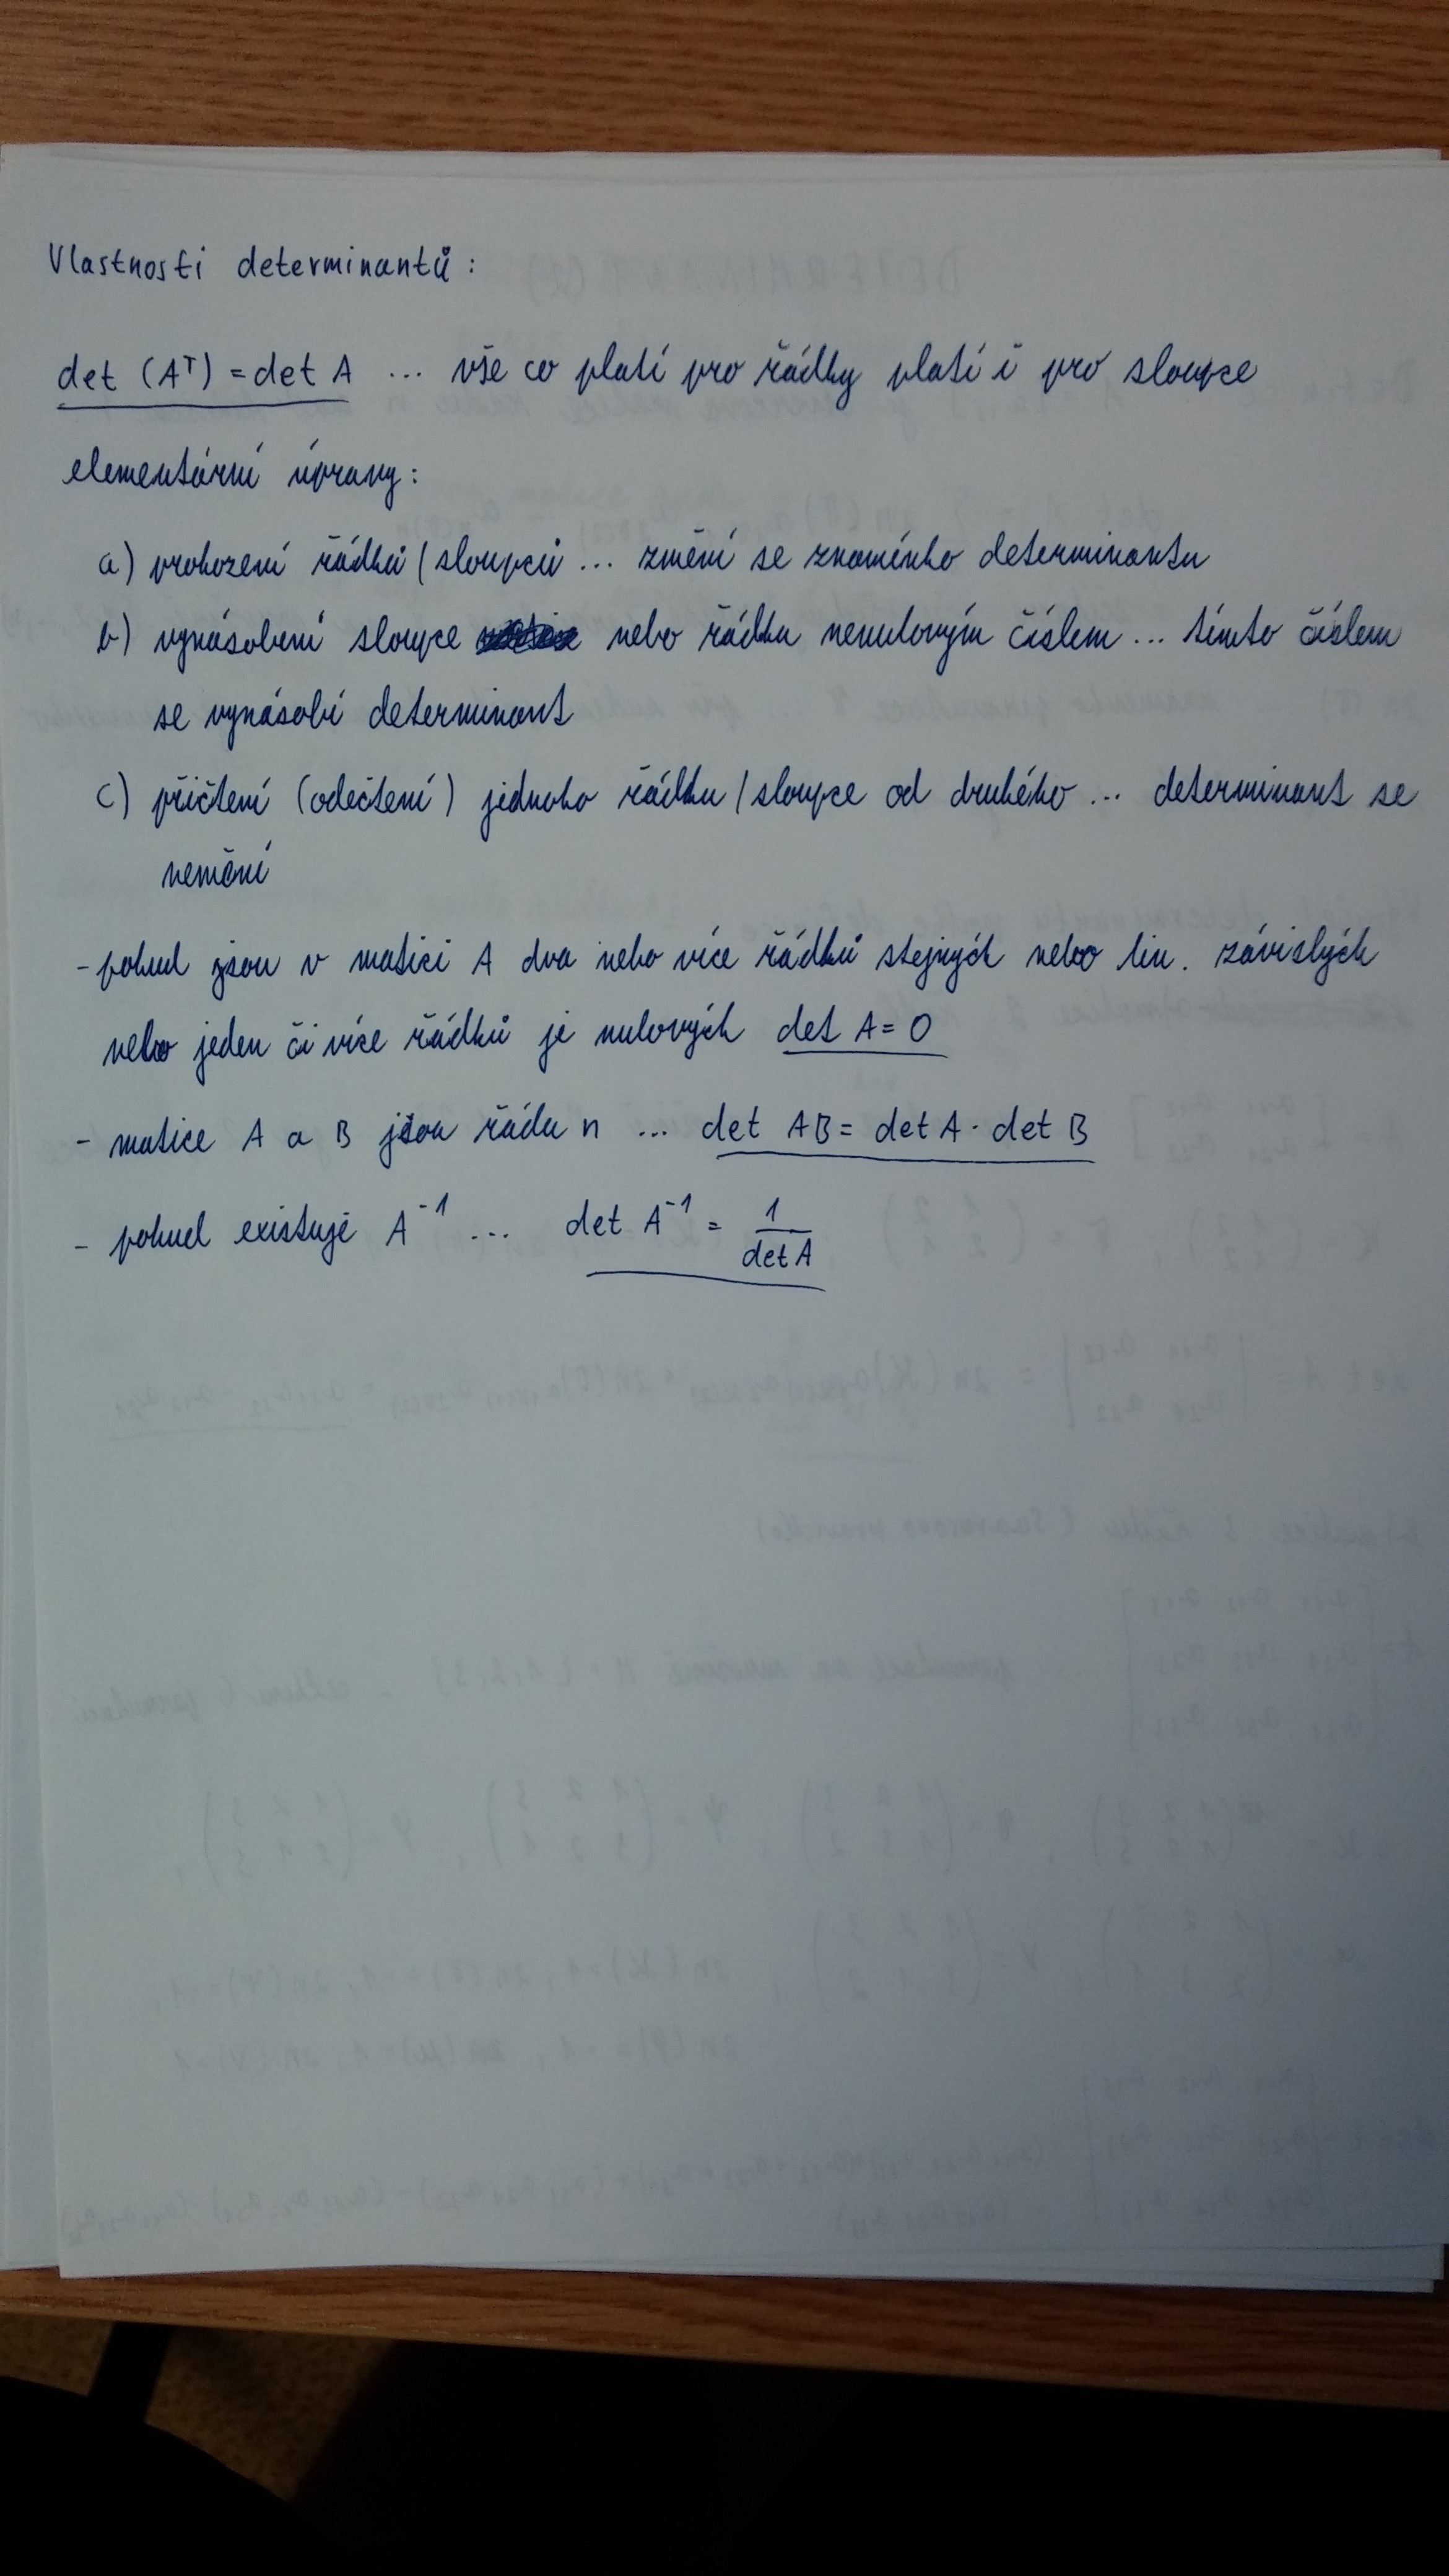 Vlastnosti determinantů:
det (Aᵀ) = det A ... vše co platí pro řádky platí i pro sloupce
elementární úpravy:
a) prohození řádků/sloupců ... změní se znaménko determinantu
b) vynásobení sloupce nebo řádku nenulovým číslem ... tímto číslem
se vynásobí determinant
c) přičtení (odečtení) jednoho řádku/sloupce od druhého ... determinant se
nemění
- pokud jsou v matici A dva nebo více řádků stejných nebo lin. závislých
nebo jeden či více řádků je nulových det A = 0
- matice A a B jsou řádu n ... det AB = det A · det B
- pokud existuje A⁻¹ ... det A⁻¹ = 1/det A